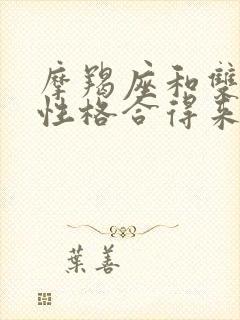 摩羯座和雙
性格合得來
葉善